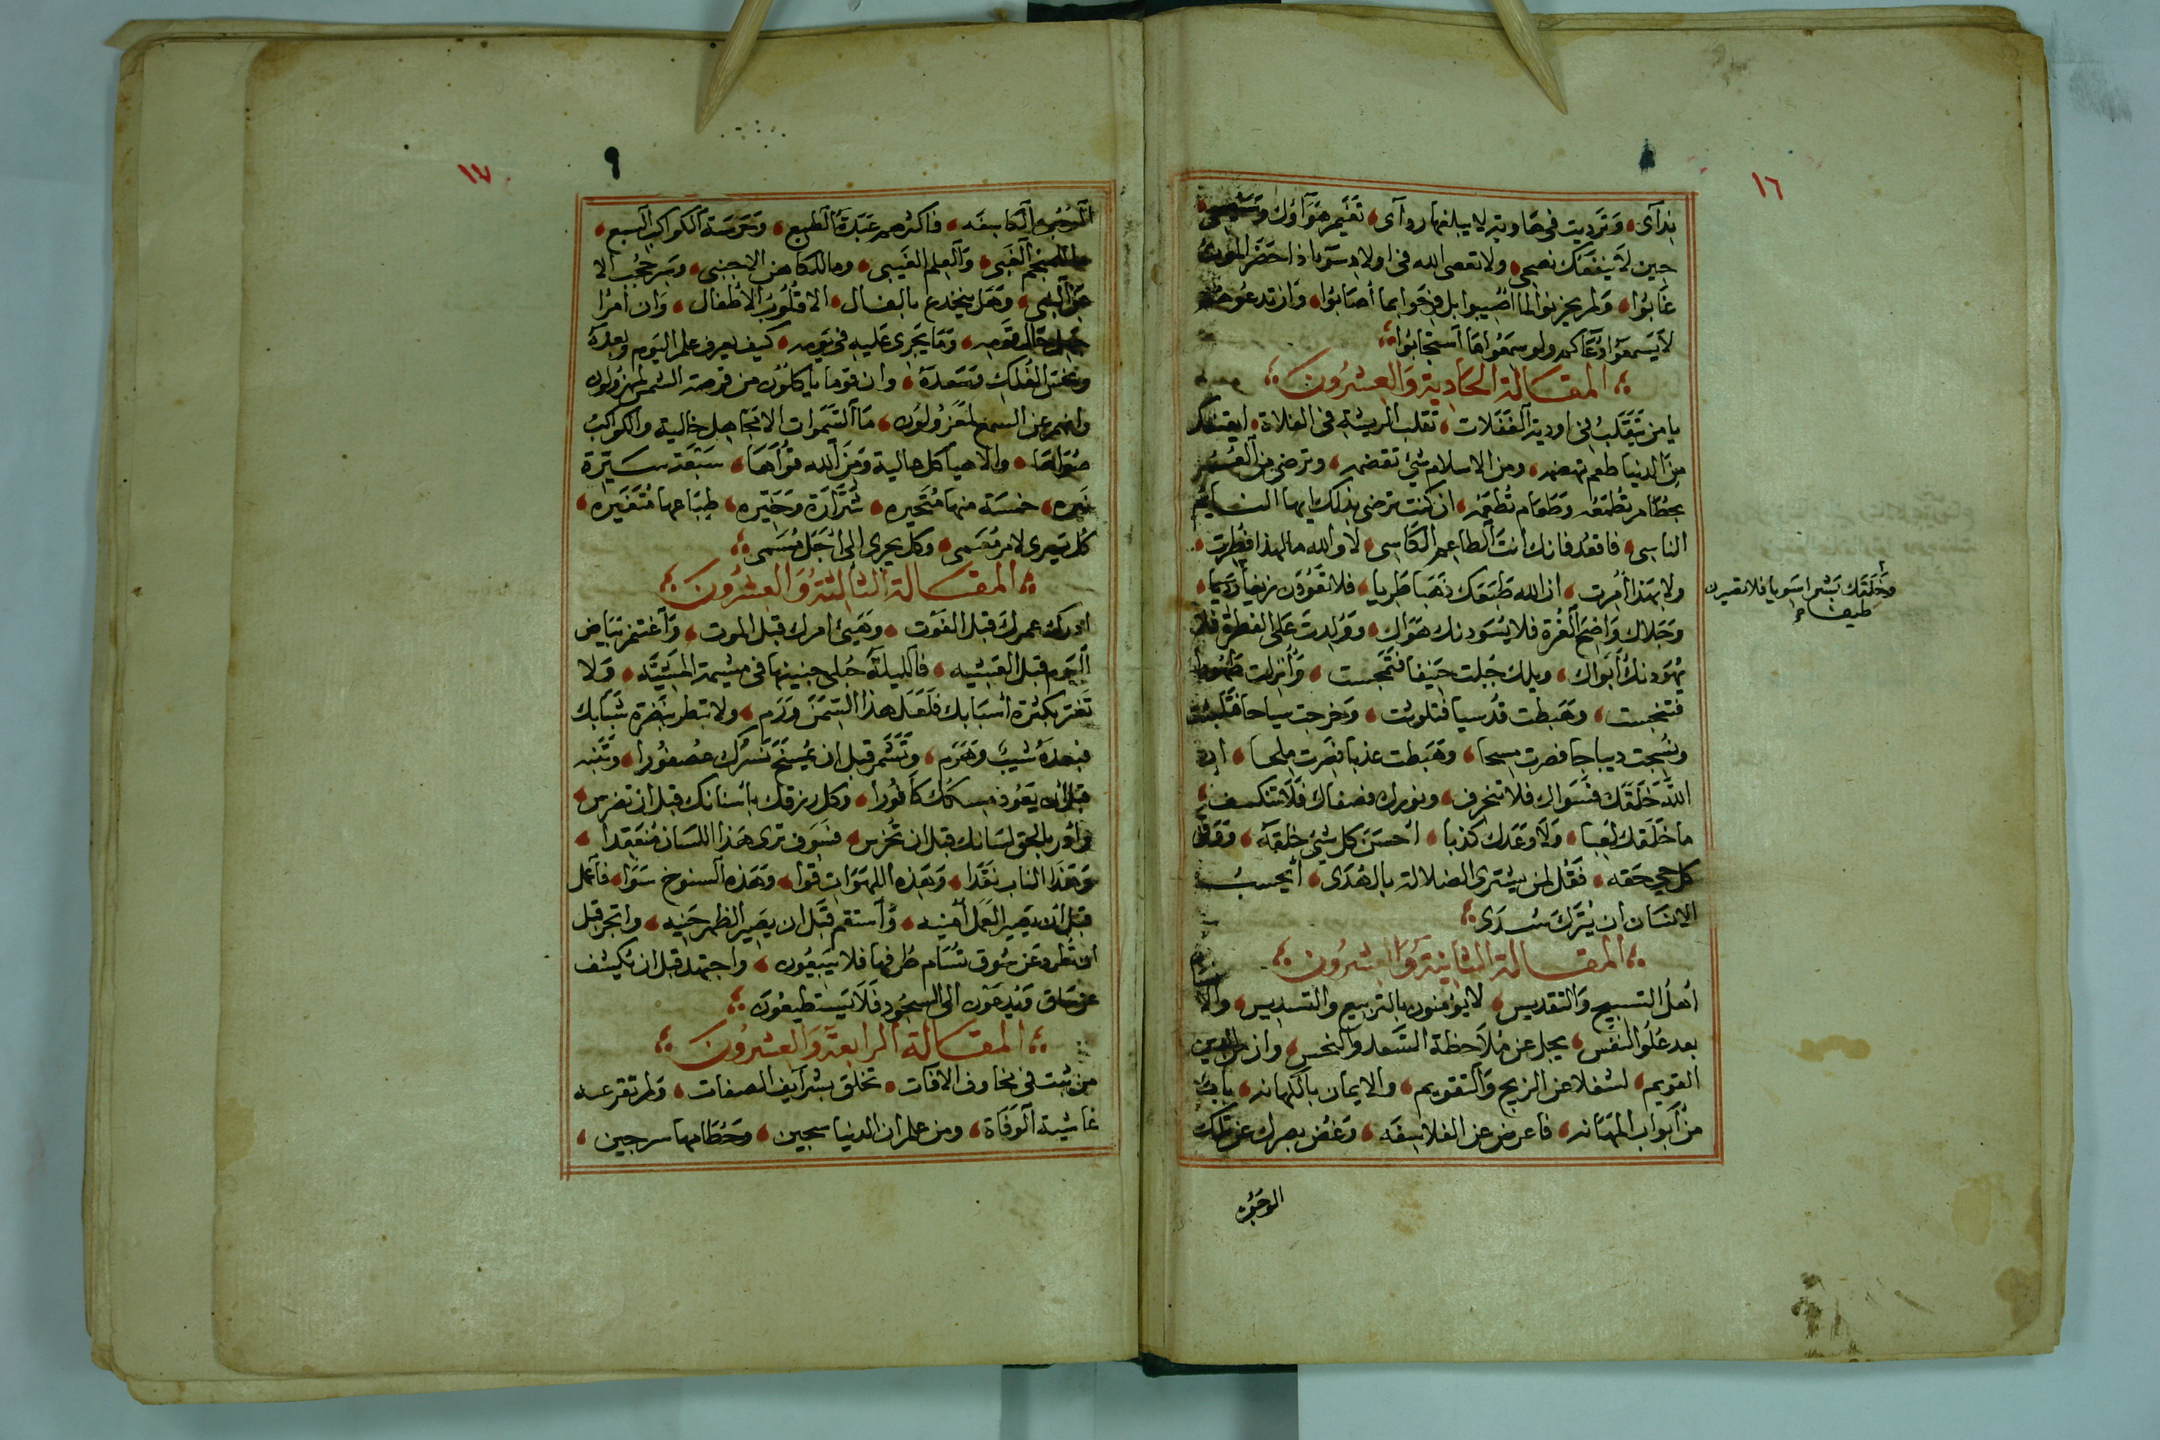 ١٦
ندآى وتردت فى هاوية لا يبلغها ردآى تغيم هوآؤك
حين لا ينفعك نصحى ولا تعص الله فى اولاد سوء اذا حضر الموت
غابوا ولم يحزنوا لما اصيبوا بل فرحوا بما اصابوا وان تدعوهم
لا يسمعوا دعاكم ولو سمعوا ما استجابوا
المقالة الحادية والعشرون
يا من يتقلب فى اودية الغفلات تقلب الريشة فى الفلاة
من الدنيا طعم تهضمه ومن الاسلام شئ تقضمه وترضى من
بحطام تطعمه وطعام تطعمه ان كنت ترضى بذلك ايها
الناسى فاقعد فانك انت الطاعم الكاسى لا والله ما لهذا فطرت
ولا بهذا امرت ان الله طبعك ذهبا طريا فلا تعودن
وجلاك واضح الغرة فلا يسودنك هواك وولدت على الفطرة فلا
يهودنك ابواك ويلك جبلت حنيفا فتمجست وانزلت طهورا
فتنجست وهبطت قدسيا فتلوثت وخرجت سياحا
ونسجت ديباجا فصرت مسحا وهبطت عذبا فصرت ملحا ان
الله خلقك فسواك فلا تنحرف ونورك فصفاك فلا تنكسف
ما خلقك لعبا ولا وعدك كذبا احسن كل شئ خلقه
كل حى حقه فقل لمن يشترى الضلالة بالهدى أيحسب
الانسان ان يترك سدى
المقالة الثانية والعشرون
اهل التسبيح والتقديس لا يؤمنون بالتربيع والتسديس
بعد علو النفس يجل عن ملاحظة السعد والنحس وان فى الدين
القويم لشغلا عن الزيج والتقويم والايمان بالكهانه باب
من ابواب المهانه فاعرض عن الفلاسفه وغض بصرك عن تلك
الوجوه
وخلقك بشرا سويا فلا تصيرن
١٧
٩
الوجوه الكاسفه فاكثرهم عبدة الطبع وحرسة الكواكب السبع
ما للمنجم الغبى والعلم الغيبى وما للكاهن الاجنبى وسر حجب الا
عن النبى وهل ينخدع بالفال الا قلوب الاطفال وان امرأ
جهل حال قومه وما يجرى عليه فى يومه كيف يعرف علم اليوم وبعده
ونحس الفلك وسعده وان قوما ياكلون من قرصة الشمس لمهزولون
وانهم عن السمع لمعزولون ما السموات الا مجاهل خالية والكواكب
صواها والا هياكل حالية ومن الله قواها سبعة سيرة
نيره خمسة منها متحيره شرارة وخيره طباعها متغيره
كل يسرى لامر معمى وكل يجرى الى اجل مسمى
المقالة الثالثة والعشرون
ادرك عمرك قبل الفوت وهيئ امرك قبل الموت واغتنم بياض
اليوم قبل العشيه فالليلة حبلى جنينها فى مشيمة المشيه ولا
تغتر بكثرة اسبابك فلعل هذا السمن ورم ولا تبطر بنضرة شبابك
فبعده شيب وهرم وتشمر قبل ان يمسخ نسرك عصفورا وتنبه
قبل ان يعود مسكك كافورا وكل رزقك باسنانك قبل ان تضرس
وأمر بالحق لسانك قبل ان تخرس فسوف ترى هذا اللسان منعقدا
وهذا الناب نقدا وهذه اللهوات قوا وهذه السنوخ سوا فاعمل
قبل ان يصير العمل امنيه واستقم قبل ان يصير الظهر حنيه واتجر قبل
ان تطرد عن سوق تسام طرفها فلا يبيعون واجتهد قبل ان يكشف
عن ساق ويدعون الى السجود فلا يستطيعون
المقالة الرابعة والعشرون
من ثبت فى مخاوف الافات تخلق بشرايف الصفات ولم تقرعه
غاشية الوفاة ومن علم ان الدنيا سجين وحطامها سرجين